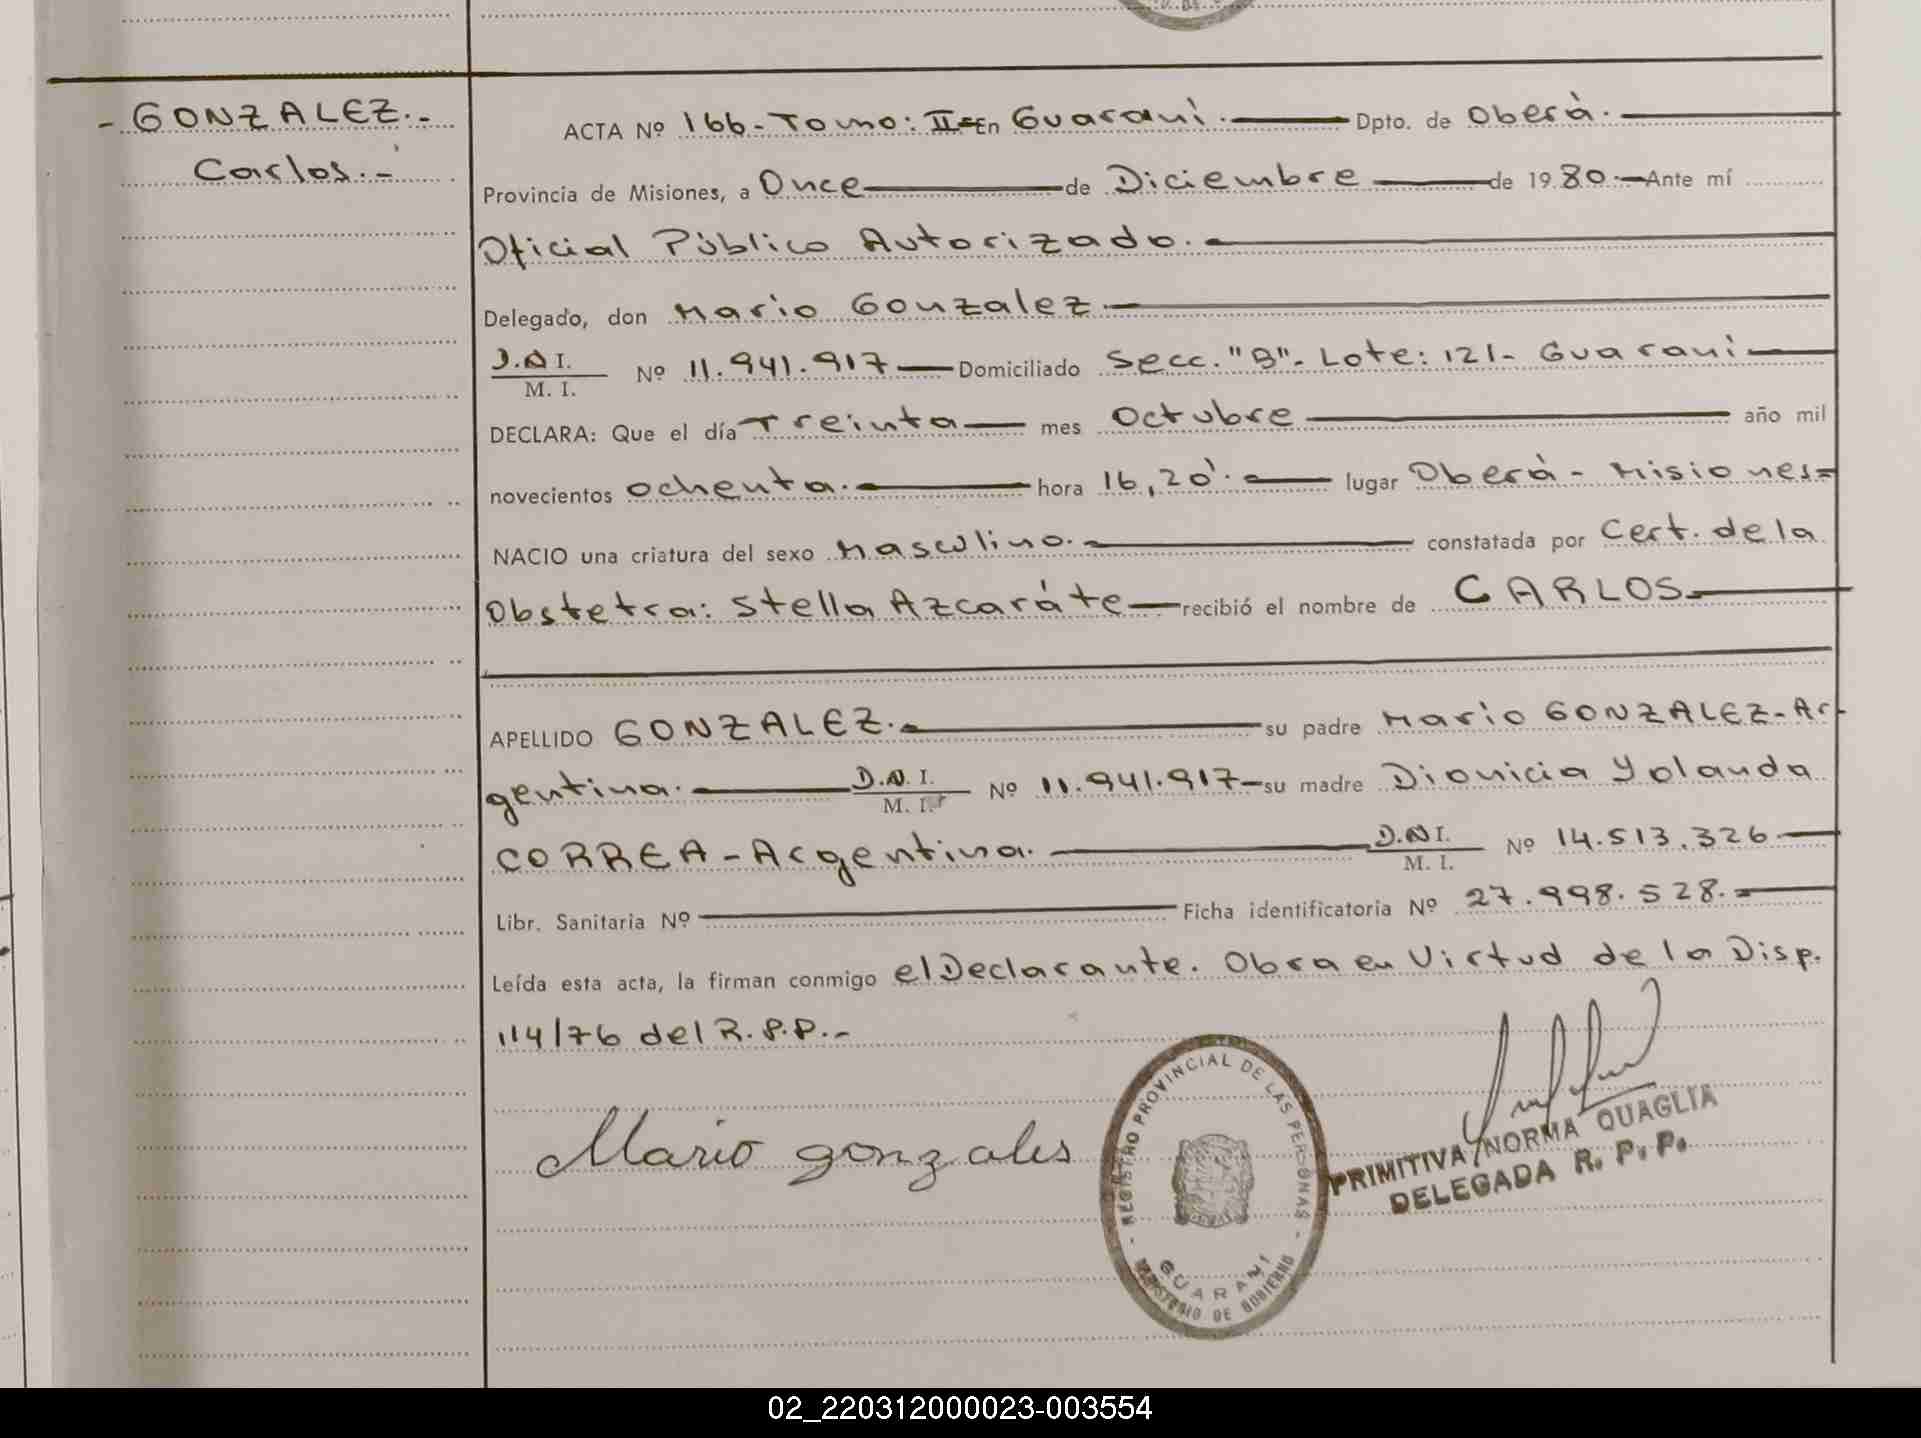 - GONZALEZ.-
Carlos.-
ACTA Nº 166- Tomo: II- En Guaraní. Dpto. de Oberà.
Provincia de Misiones, a Once de Diciembre de 1980.- Ante mí
Oficial Público Autorizado.
Delegado, don Mario Gonzalez.
D.N.I. / M. I. Nº 11.941.917 Domiciliado Secc. "B"- Lote: 121- Guaraní
DECLARA: Que el día Treinta mes Octubre año mil
novecientos ochenta. hora 16,20'. lugar Oberà - Misiones-
NACIO una criatura del sexo Masculino. constatada por Cert. de la
Obstetra: Stella Azcaráte recibió el nombre de CARLOS
APELLIDO GONZALEZ. su padre Mario GONZALEZ- Ar-
gentina. D.N.I. / M. I. Nº 11.941.917- su madre Dionicia Yolanda
CORREA - Argentina. D.N.I. / M. I. Nº 14.513.326
Libr. Sanitaria Nº Ficha identificatoria Nº 27.998.528.
Leída esta acta, la firman conmigo el Declarante. Obra en Virtud de la Disp.
114/76 del R.P.P.-
Mario gonzales
- REGISTRO PROVINCIAL DE LAS PERSONAS -
GUARANI
MINISTERIO DE GOBIERNO
PRIMITIVA NORMA QUAGLIA
DELEGADA R. P. P.
02_220312000023-003554